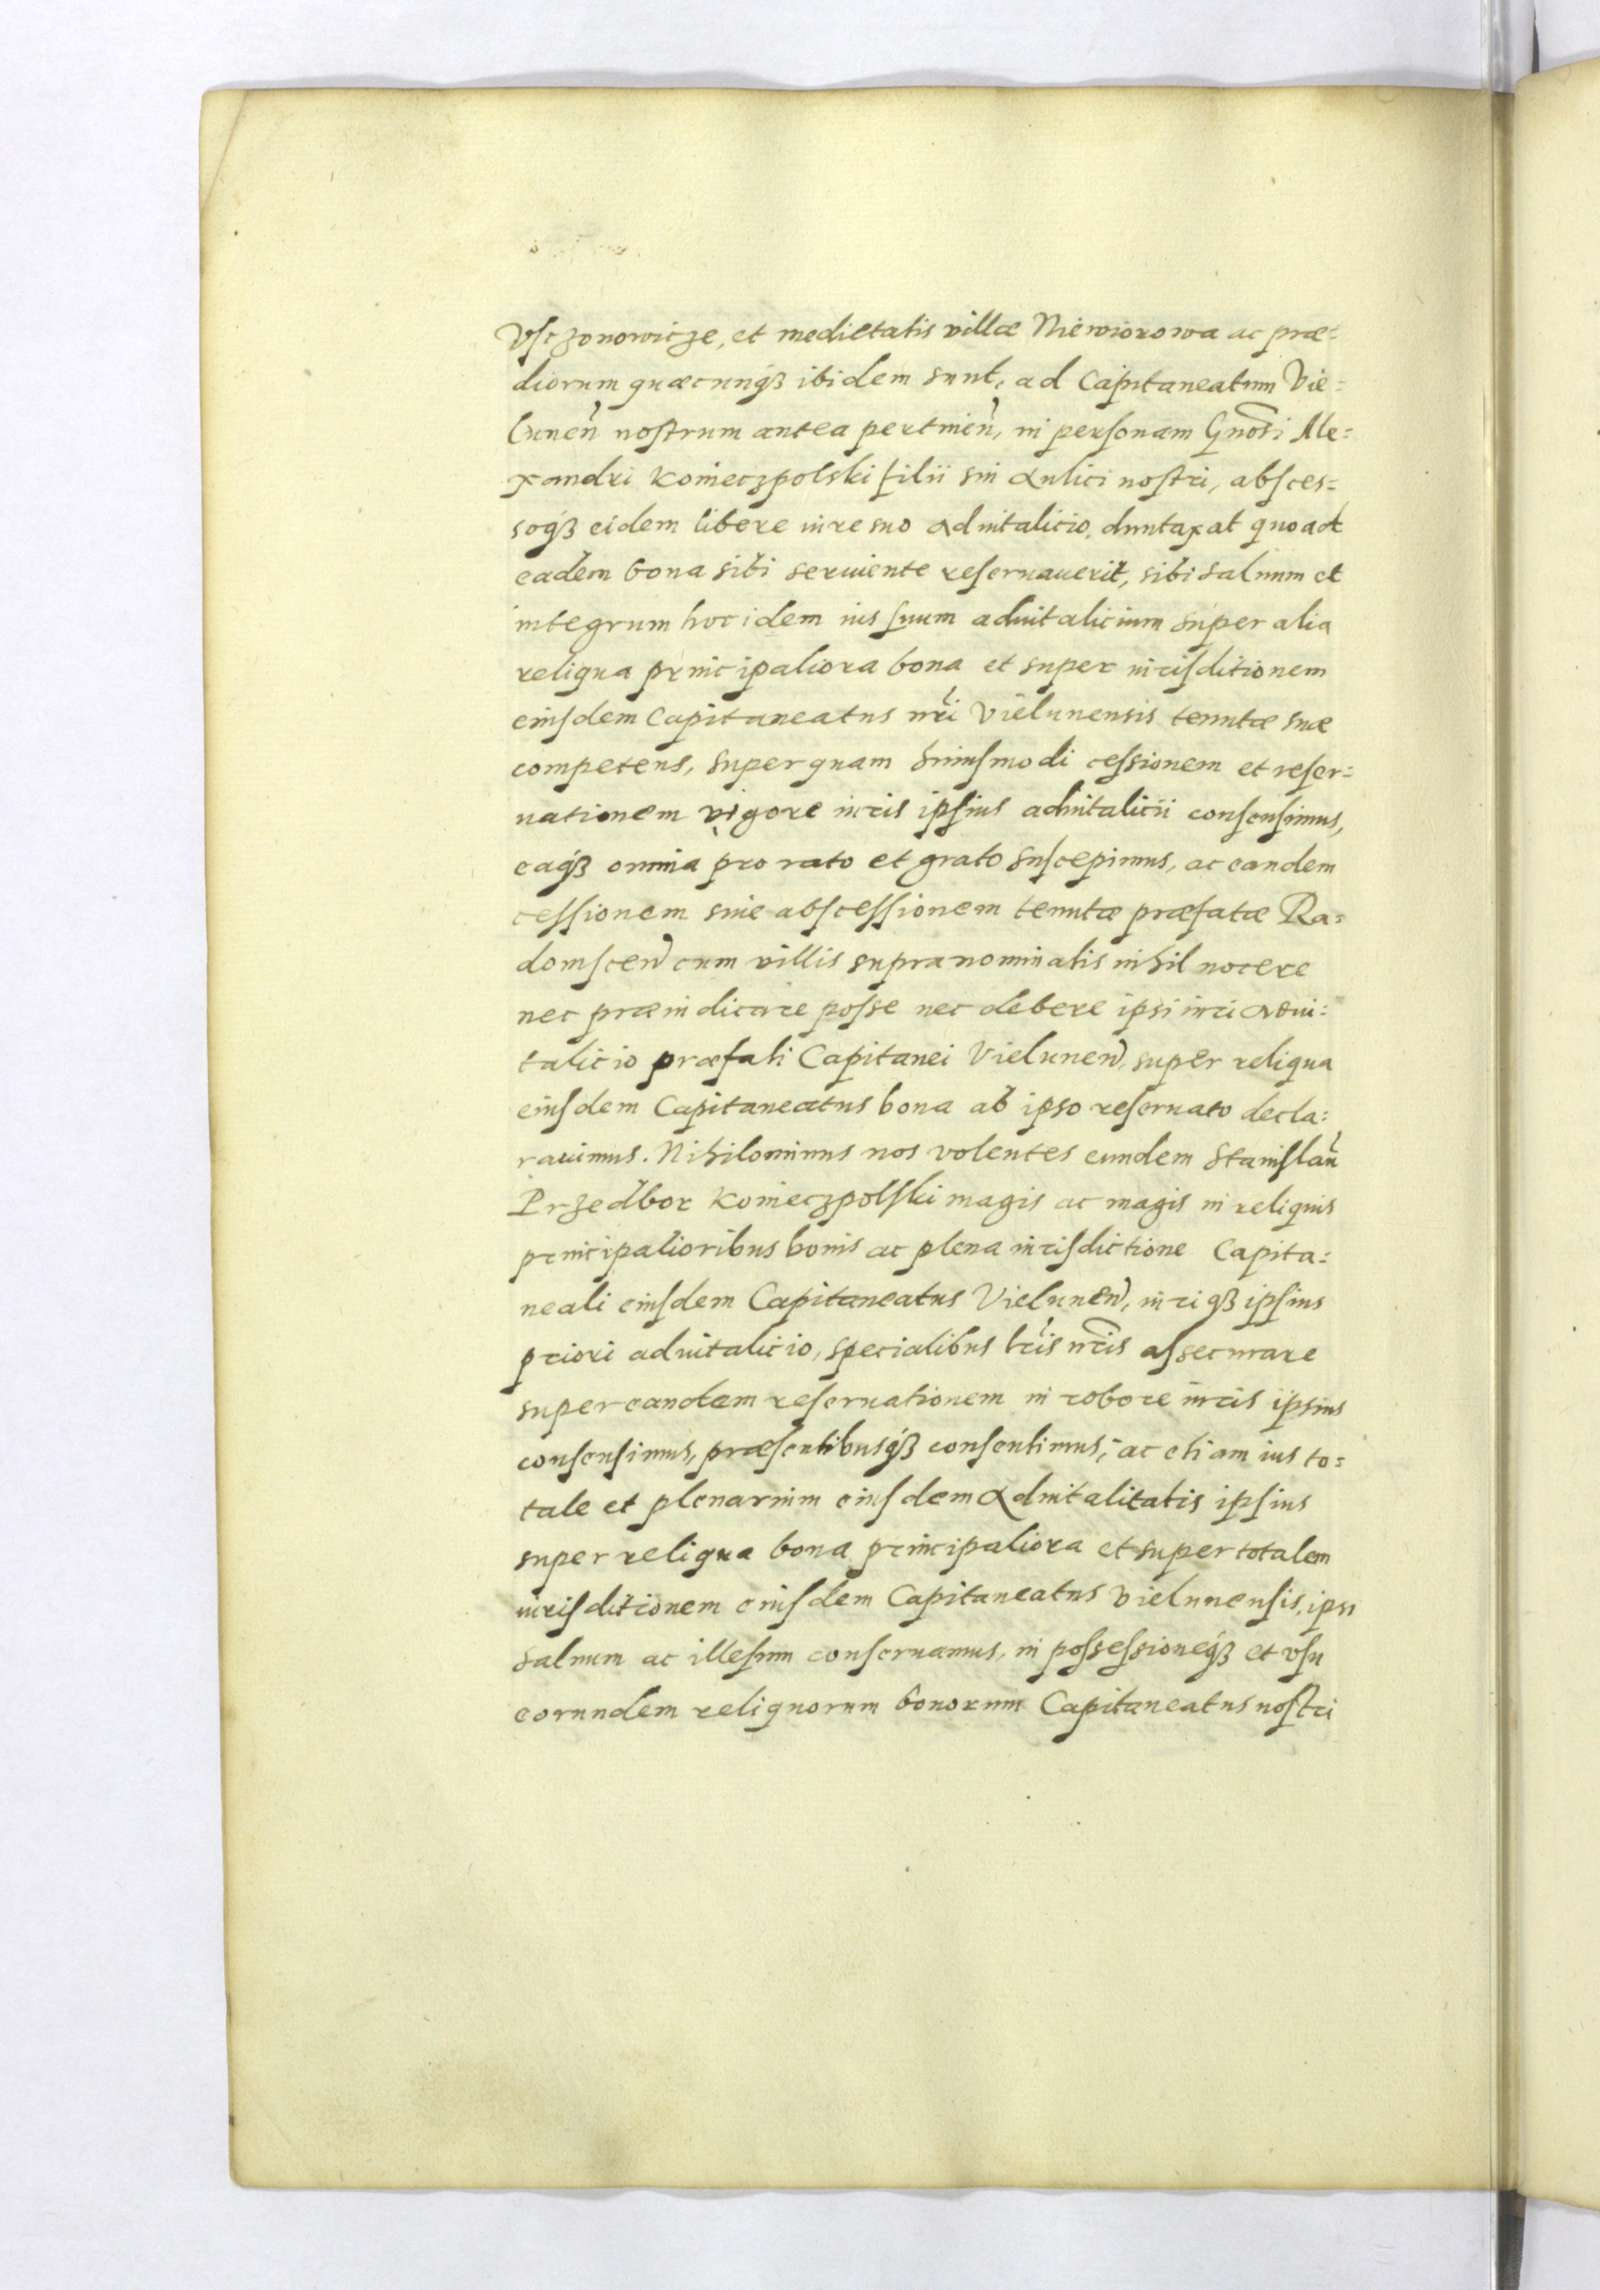 Vsczonowicze, et medietatis villæ Niewiorowa ac præ=
diorum quæcunqꝫ ibidem sunt, ad Capitaneatum Vie=
lunen̄ nostrum antea pertinen̄, in personam Gnōsi Ale=
xandri Konieczpolski filii sui Aulici nostri, absces=
soqꝫ eidem libere iure suo aduitalicio, duntaxat quoad
eadem bona sibi seruiente reseruauerit, sibi saluum et
integrum hoc idem ius suum aduitalicium super alia
reliqua principaliora bona et super iurisditionem
eiusdem Capitaneatus nr̄i Vielunensis tenutæ suæ
competens, super quam huiusmodi cessionem et reser=
uationem vigore iuris ipsius aduitalicii consensimus,
eaqꝫ omnia pro rato et grato suscepimus, ac eandem
cessionem siue abscessionem tenutæ præfatæ Ra=
domscen̄ cum villis supranominatis nihil nocere
nec præiudicare posse nec debere ipsi iuri adui=
talicio præfati Capitanei Vielunen̄, super reliqua
eiusdem Capitaneatus bona ab ipso reseruato decla=
rauimus. Nihilominus nos volentes eundem Stanislaū
Przedbor Konieczpolski magis ac magis in reliquis
principalioribus bonis ac plena iurisdictione Capita=
neali eiusdem Capitaneatus Vielunen̄, iuriqꝫ ipsius
priori aduitalicio, specialibus lr̄is nr̄is assecurare
super eandem reseruationem in robore iuris ipsius
consensimus, præsentibusqꝫ consentimus, ac etiam ius to=
tale et plenarium eiusdem Aduitalitatis ipsius
super reliqua bona principaliora et super totalem
iurisditionem eiusdem Capitaneatus Vielunensis, ipsi
saluum ac illesum conseruamus, in possessioneqꝫ et vsu
eorundem reliquorum bonorum Capitaneatus nostri